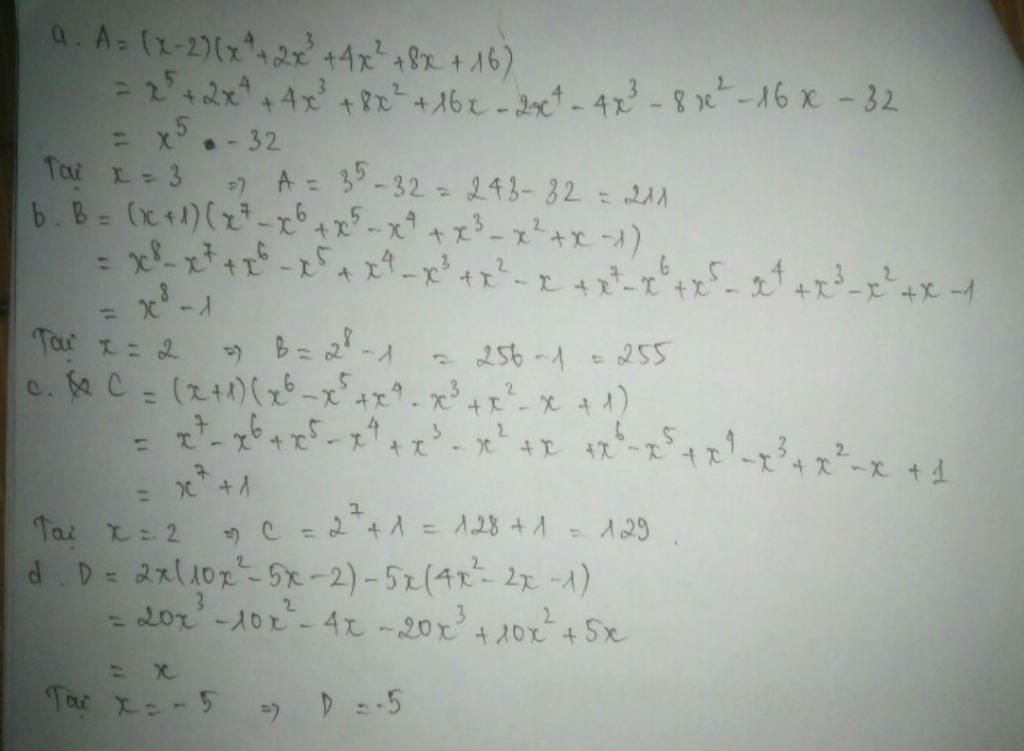 a. A = (x-2)(x⁴+2x³+4x²+8x+16)
= x⁵+2x⁴+4x³+8x²+16x-2x⁴-4x³-8x²-16x-32
= x⁵ - 32
Tại x = 3 => A = 3⁵-32 = 243-32 = 211
b. B = (x+1)(x⁷-x⁶+x⁵-x⁴+x³-x²+x-1)
= x⁸-x⁷+x⁶-x⁵+x⁴-x³+x²-x+x⁷-x⁶+x⁵-x⁴+x³-x²+x-1
= x⁸-1
Tại x = 2 => B = 2⁸-1 = 256-1 = 255
c. C = (x+1)(x⁶-x⁵+x⁴-x³+x²-x+1)
= x⁷-x⁶+x⁵-x⁴+x³-x²+x+x⁶-x⁵+x⁴-x³+x²-x+1
= x⁷+1
Tại x = 2 => C = 2⁷+1 = 128+1 = 129.
d. D = 2x(10x²-5x-2)-5x(4x²-2x-1)
= 20x³-10x²-4x-20x³+10x²+5x
= x
Tại x = -5 => D = -5